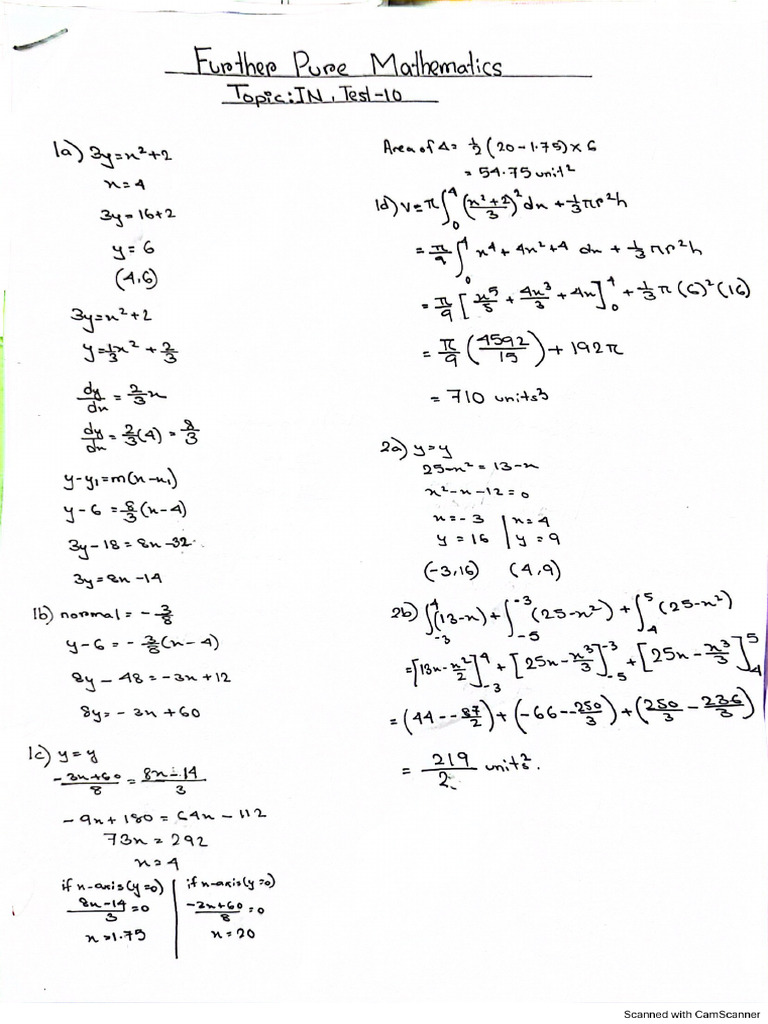 Further Pure Mathematics
Topic: IN, Test-10
1a) 3y=x²+2
x=4
3y=16+2
y=6
(4,6)
3y=x²+2
y=1/3x²+2/3
dy/dx=2/3x
dy/dx=2/3(4)=8/3
y-y₁=m(x-x₁)
y-6=8/3(x-4)
3y-18=8x-32
3y=8x-14
1b) normal=-3/8
y-6=-3/8(x-4)
8y-48=-3x+12
8y=-3x+60
1c) y=y
(-3x+60)/8=(8x-14)/3
-9x+180=64x-112
73x=292
x=4
if x-axis(y=0) | if x-axis(y=0)
(8x-14)/3=0 | (-3x+60)/8=0
x=1.75 | x=20
Area of Δ= 1/2(20-1.75)×6
=54.75 unit²
1d) V=π∫₀⁴((x²+2)/3)²dx+1/3πr²h
=π/9∫₀⁴x⁴+4x²+4 dx+1/3πr²h
=π/9[x⁵/5+4x³/3+4x]₀⁴+1/3π(6)²(16)
=π/9(4592/15)+192π
=710 units³
2a) y=y
25-x²=13-x
x²-x-12=0
x=-3 | x=4
y=16 | y=9
(-3,16) (4,9)
2b) ∫₋₃⁴(13-x)+∫₋₅⁻³(25-x²)+∫₄⁵(25-x²)
=[13x-x²/2]₋₃⁴+[25x-x³/3]₋₅⁻³+[25x-x³/3]₄⁵
=(44--87/2)+(-66--250/3)+(250/3-236/3)
=219/2 units².
Scanned with CamScanner